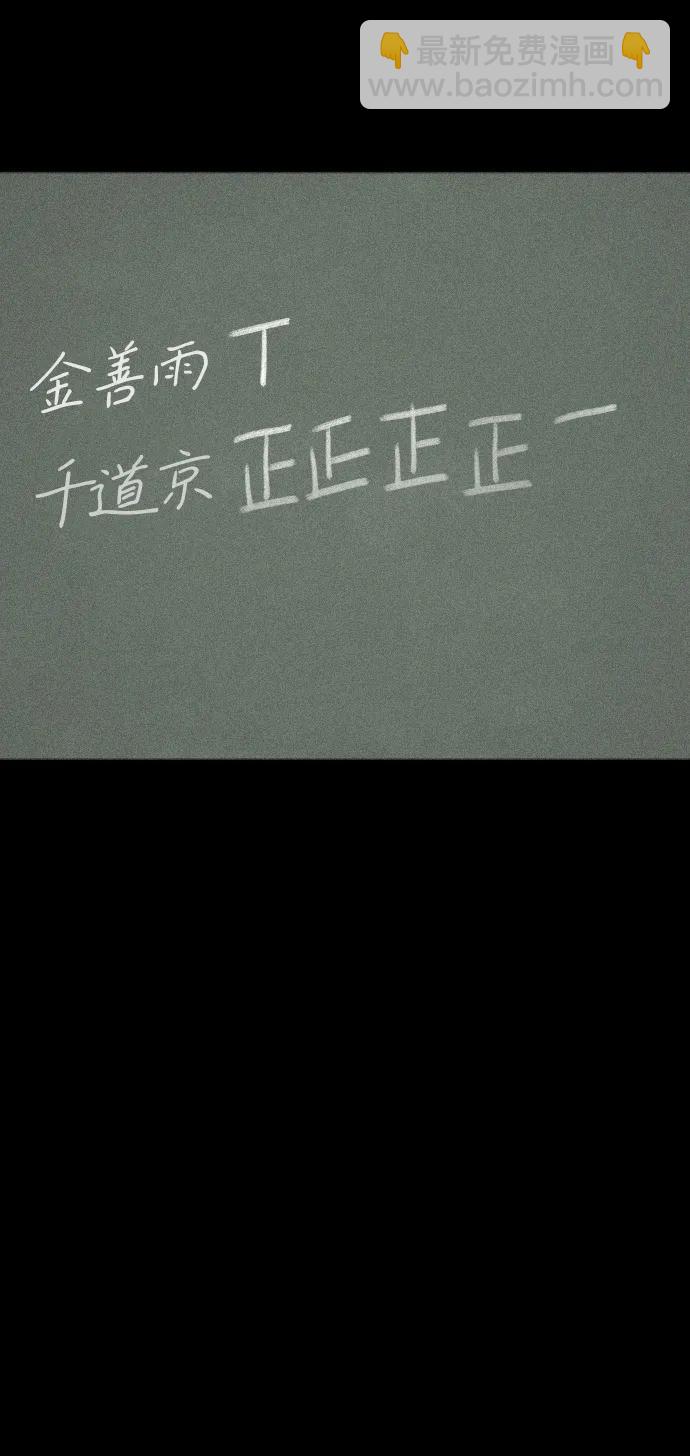 👇最新免费漫画👇
www.baozimh.com
金善雨 丅
千道京 正正正正一